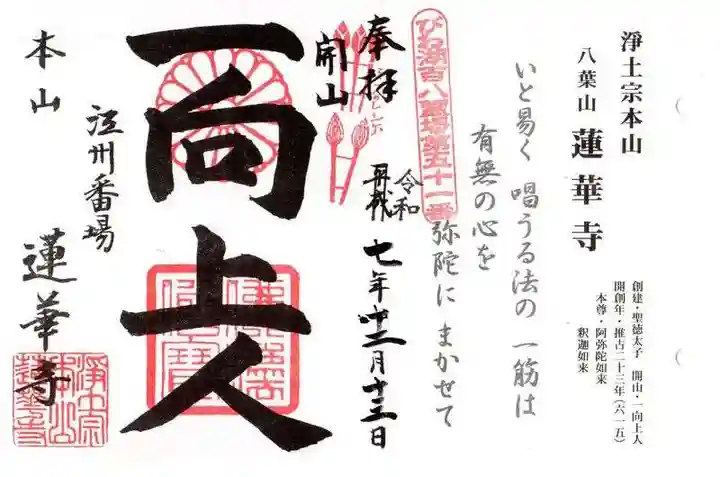 淨土宗本山
八葉山 蓮華寺
創建・聖徳太子 開山・一向上人
開創年・推古二十三年(六一五)
本尊・阿弥陀如来
釈迦如来
いと易く 唱うる法の 一筋は
有無の心を
弥陀に まかせて
びわ湖百八霊場第五十一番
奉拝
令和
七年十二月十三日
開山
一向上人
江州番場
本山
蓮華寺
淨土宗
本山
蓮華寺